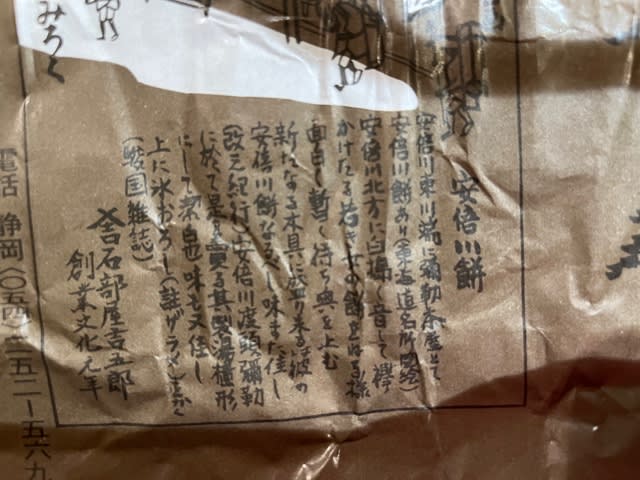 安倍川餅
安倍川東川端に彌勒茶屋とて
安倍川餅あり(東海道名所図絵)
安倍川北方に臼搗く音して襷
かけたる若き女の餅をねる様
面白し暫く待ち興を上む
新たなる木具に盛り来るは彼の
安倍川餅なる反し味また佳し
(改元紀行)安倍川渡頭彌勒
に於て是を売る其製湯橦形
にして潔白也味も又佳し
上に氷おろし(註ザラメ)をかく
(駿国雑誌)
石部屋吉五郎
創業文化元年
みろく
電話 静岡(〇五四)二五二ー五六九